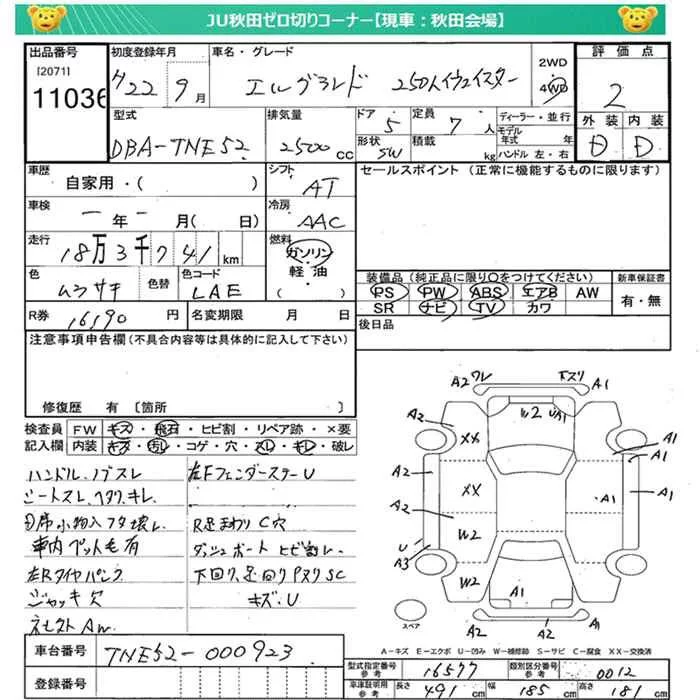 JU秋田ゼロ切りコーナー【現車：秋田会場】
出品番号
[2071]
11036
初度登録年月
H22 9 月
車名・グレード
エルグランド 250ハイウェイスター
2WD
4WD
評価点
2
外装 内装
D D
型式
DBA-TNE52
排気量
2500 CC
ドア
5
形状
SW
定員
7 人
積載
kg
ディーラー・並行
モデル年式 年
ハンドル 左・右
車歴
自家用・( )
シフト
AT
車検
ー 年 ー 月( 日)
冷房
AAC
走行
18万3千741 km
燃料
ガソリン
軽油
( )
色
ムラサキ
色替
色コード
LAE
R券
16,190 円
名変期限 月 日
セールスポイント (正常に機能するものに限ります)
装備品 (純正品に限り○をつけてください)
PS PW ABS エアB AW
SR ナビ TV カワ
新車保証書
有・無
後日品
注意事項申告欄(不具合内容等は具体的に記入して下さい)
修復歴 有 〔箇所 〕
検査員記入欄
FW キズ・飛石・ヒビ割・リペア跡・×要
内装 キズ・汚レ・コゲ・穴・スレ・キレ・破レ
ハンドル、ノブスレ
シートスレ、ヘタリ、キレ
D席小物入フタ壊レ
車内ペット毛有
左Rタイヤパンク
ジャッキ欠
左FフェンダーステーU
R足まわりC穴
ダッシュボードヒビ割レ
下回り、足回りPヌリSC
キズ・U
A2 ワレ
下スリ A1
A2
W2
UA1
XX
A1
A1
A2
XX
A1
A1
A2
W2
U
A3
W2
A1
スペア
A1
A2
A2
A－キズ E－エクボ U－凹み W－補修跡 S－サビ C－腐食 XX－交換済
車台番号
TNE52-000923
登録番号
型式指定番号
参考
16577
類別区分番号
参考
0012
車庫証明用
参考
長さ 491 cm
幅 185 cm
高さ 181 cm